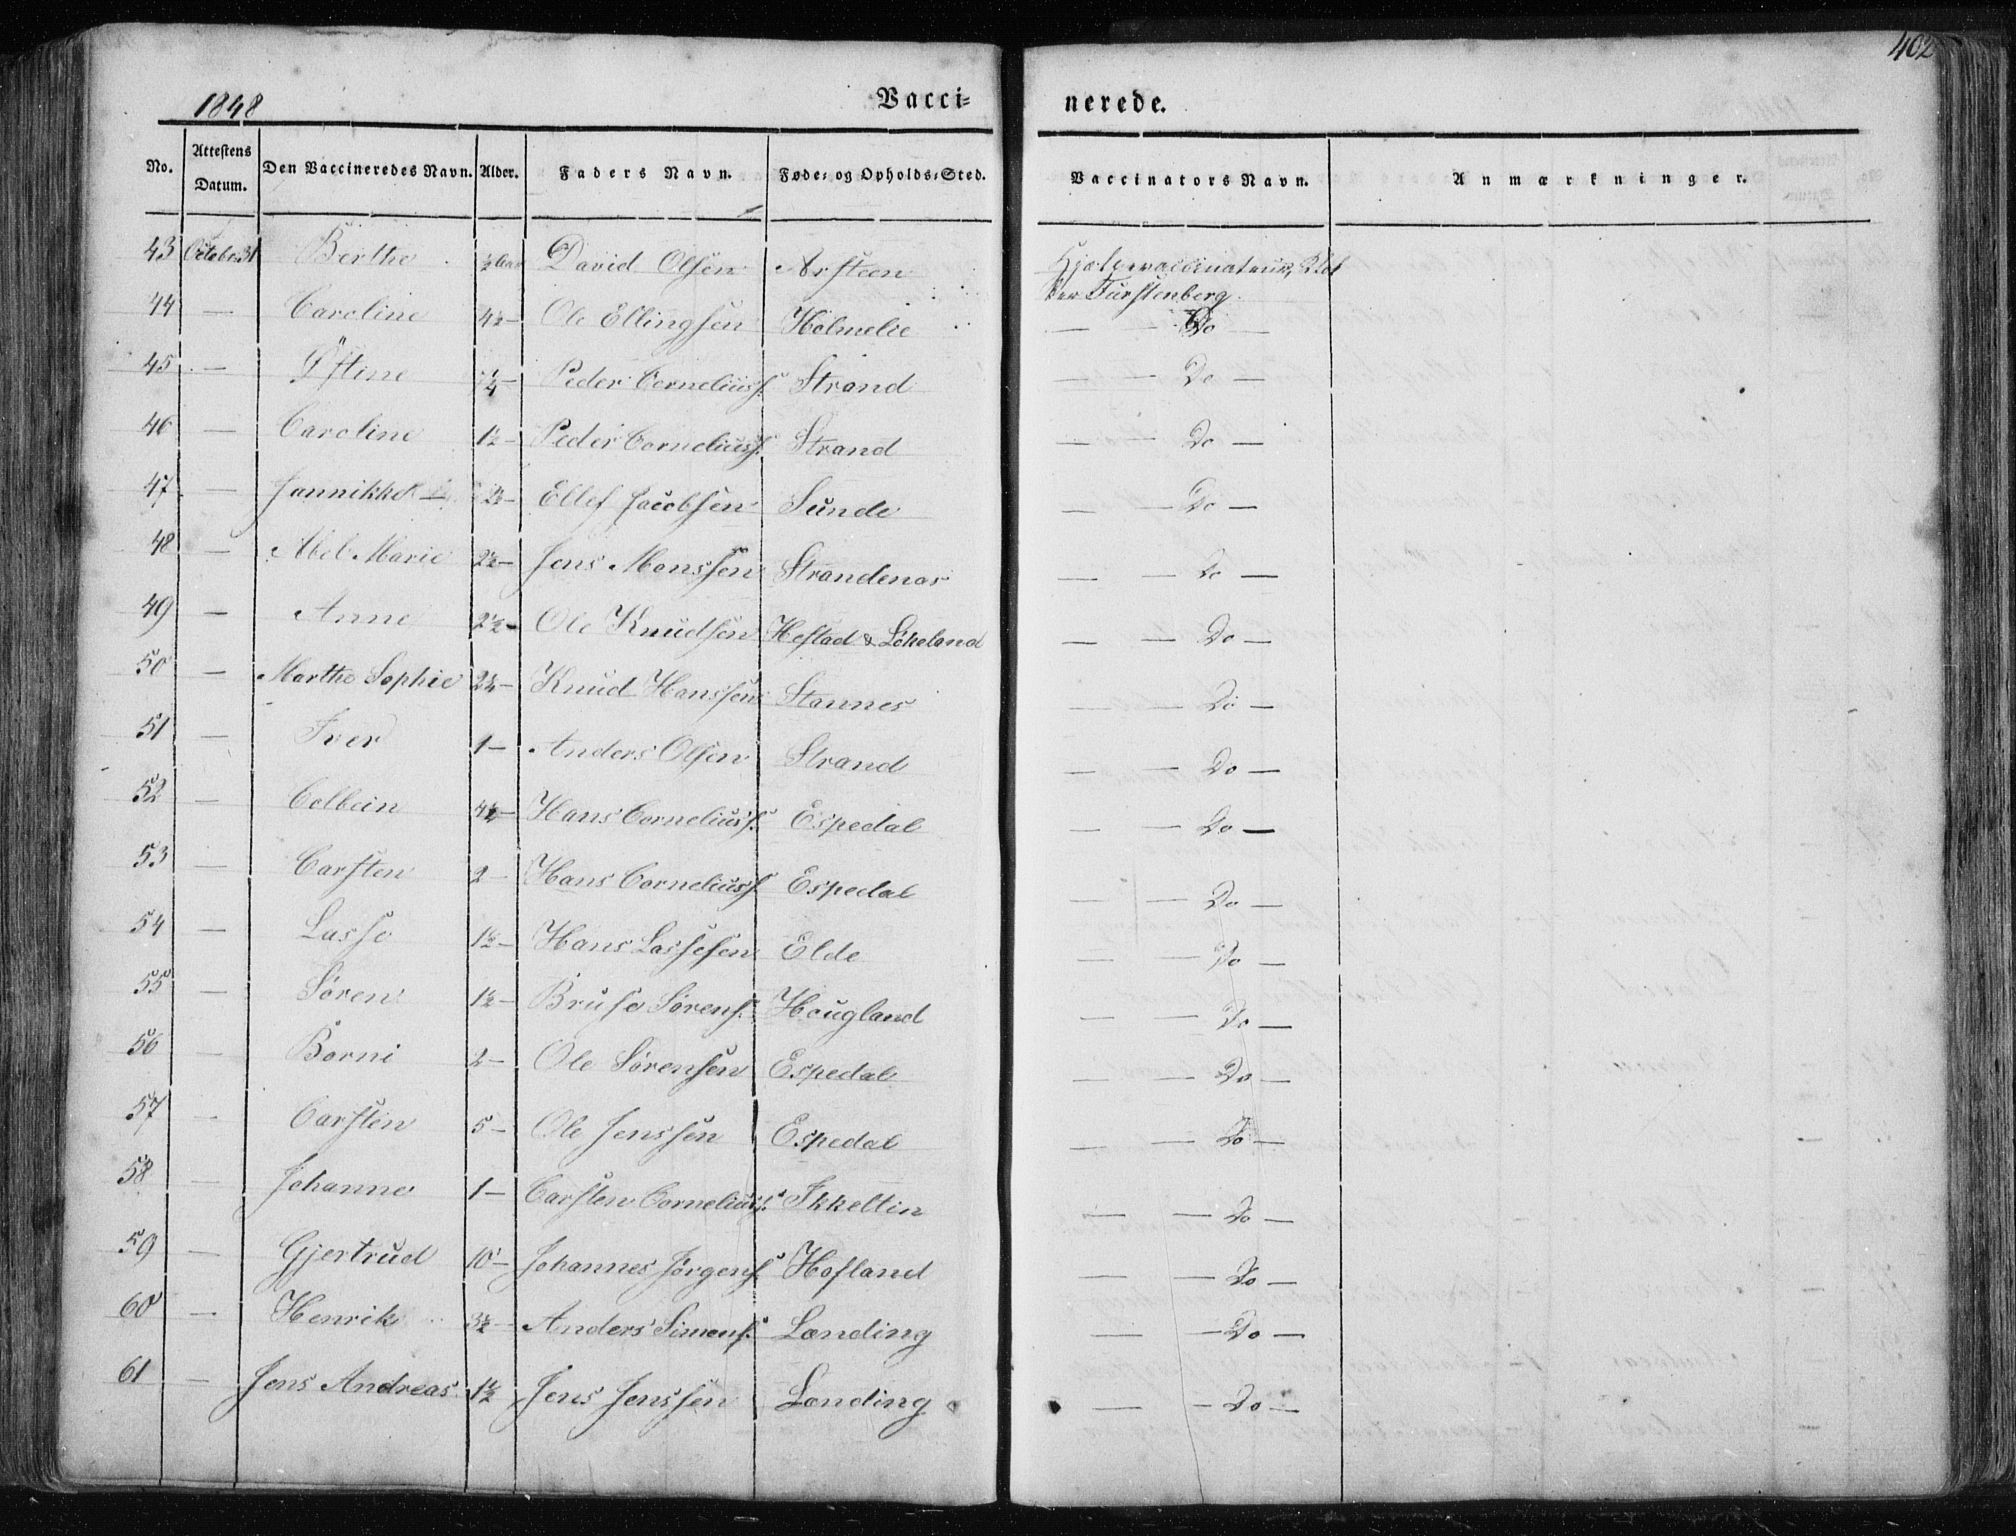 402
1848 Vacci= nerede.
No. Attestens Datum. Den Vaccineredes Navn. Alder. Faders Navn. Føde= og Opholds=Sted. Vaccinators Navn. Anmærkninger.
43 October 31 Berthe ½ aar David Olsen Arsteen Hjelpevaccinateur,
Furstenberg.
44 — Caroline 4½ — Ole Ellingsen Holmelie — — Do —
45 — Østine ¼ — Peder Corneliuss. Strand — — Do —
46 — Caroline 1½ — Peder Corneliuss. Strand — — Do —
47 — Jannikke — Ellef Jacobsen Sunde — — Do —
48 — Abel Marie 2½ — Jens Monssen Strandenæs — — Do —
49 — Anne 2½ — Ole Knudsen Hestad & Løkeland — — Do —
50 — Marthe Sophie 2¼ — Knud Hanssen Stannes — — Do —
51 — Iver 1 — Anders Olsen Strand — — Do —
52 — Colbein 4½ — Hans Corneliuss. Espedal — — Do —
53 — Carsten 2 — Hans Corneliuss. Espedal — — Do —
54 — Lasse 1½ — Hans Lassesen Elde — — Do —
55 — Søren 1½ — Bruse Sørens. Hougland — — Do —
56 — Borni 2 — Ole Sørensen Espedal — — Do —
57 — Carsten 5 — Ole Jenssen Espedal — — Do —
58 — Johanne 1 — Carsten Corneliuss. Ikkeltin — — Do —
59 — Gjertrud 10 — Johannes Jørgens. Hofland — — Do —
60 — Henrik 3½ — Anders Simens. Lending — — Do —
61 — Jens Andreas 1½ Jens Jenssen Lending — — Do —